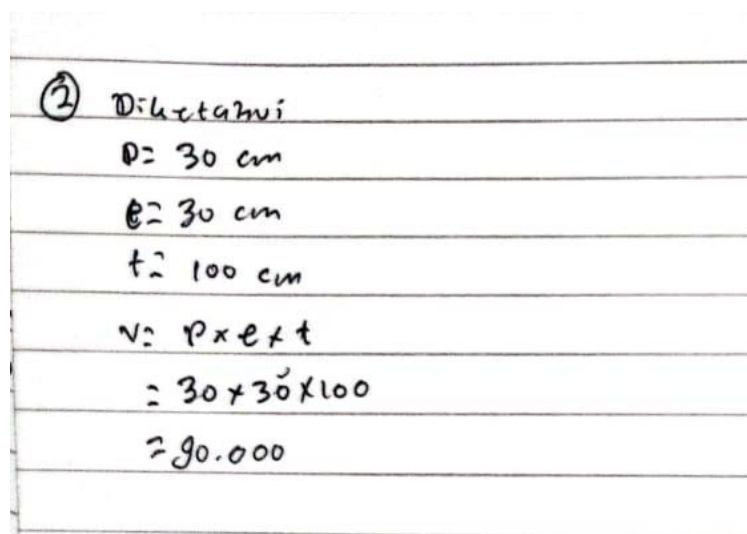 ② Diketahui
P= 30 cm
l= 30 cm
t= 100 cm
V= P x l x t
= 30 x 30 x 100
= 90.000